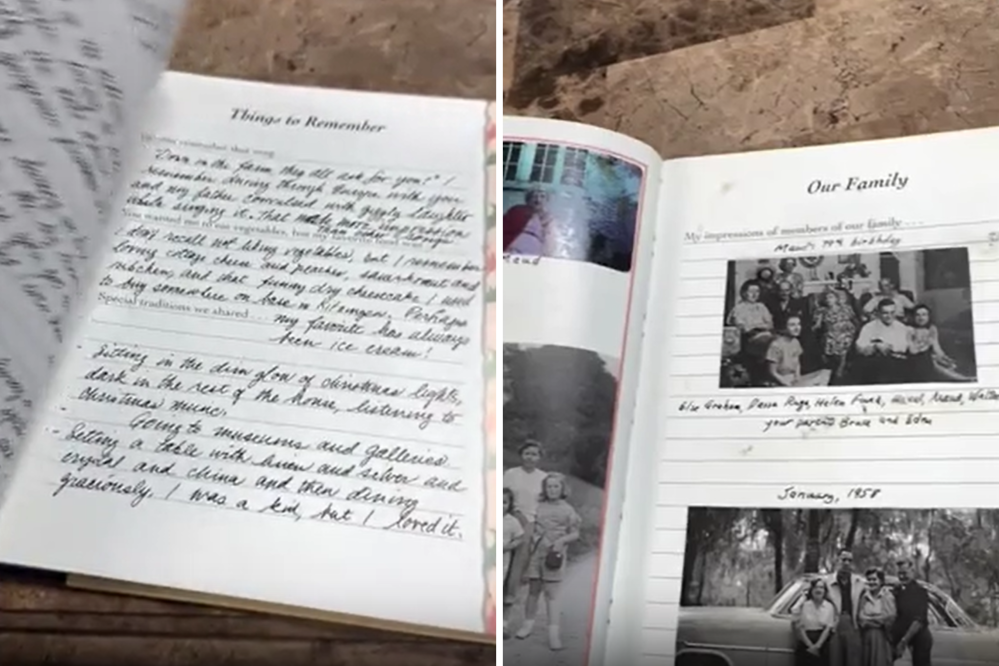 Things to Remember
remember that song
"Down on the farm they all ask for you?" I
remember driving through with you
and my father convulsed with giggly laughter
while singing it. That made more impression
than other songs.
You wanted me to eat vegetables, but my favorite food
I don't recall not liking vegetables, but I remember
loving cottage cheese and peaches, sauerkraut and
and that funny dry cheesecake I used
to buy somewhere on base in Kitzingen. Perhaps
Special traditions we shared ... my favorite has always
been ice cream!
- Sitting in the dim glow of christmas lights,
dark in the rest of the house, listening to
christmas music.
- Going to museums and galleries
- Setting a table with linen and silver and
crystal and china and then dining
graciously. I was a kid, but I loved it.
Our Family
My impressions of members of our family ...
Maud's birthday
Graham, Helen Maud,
your parents Bruce and
January, 1958